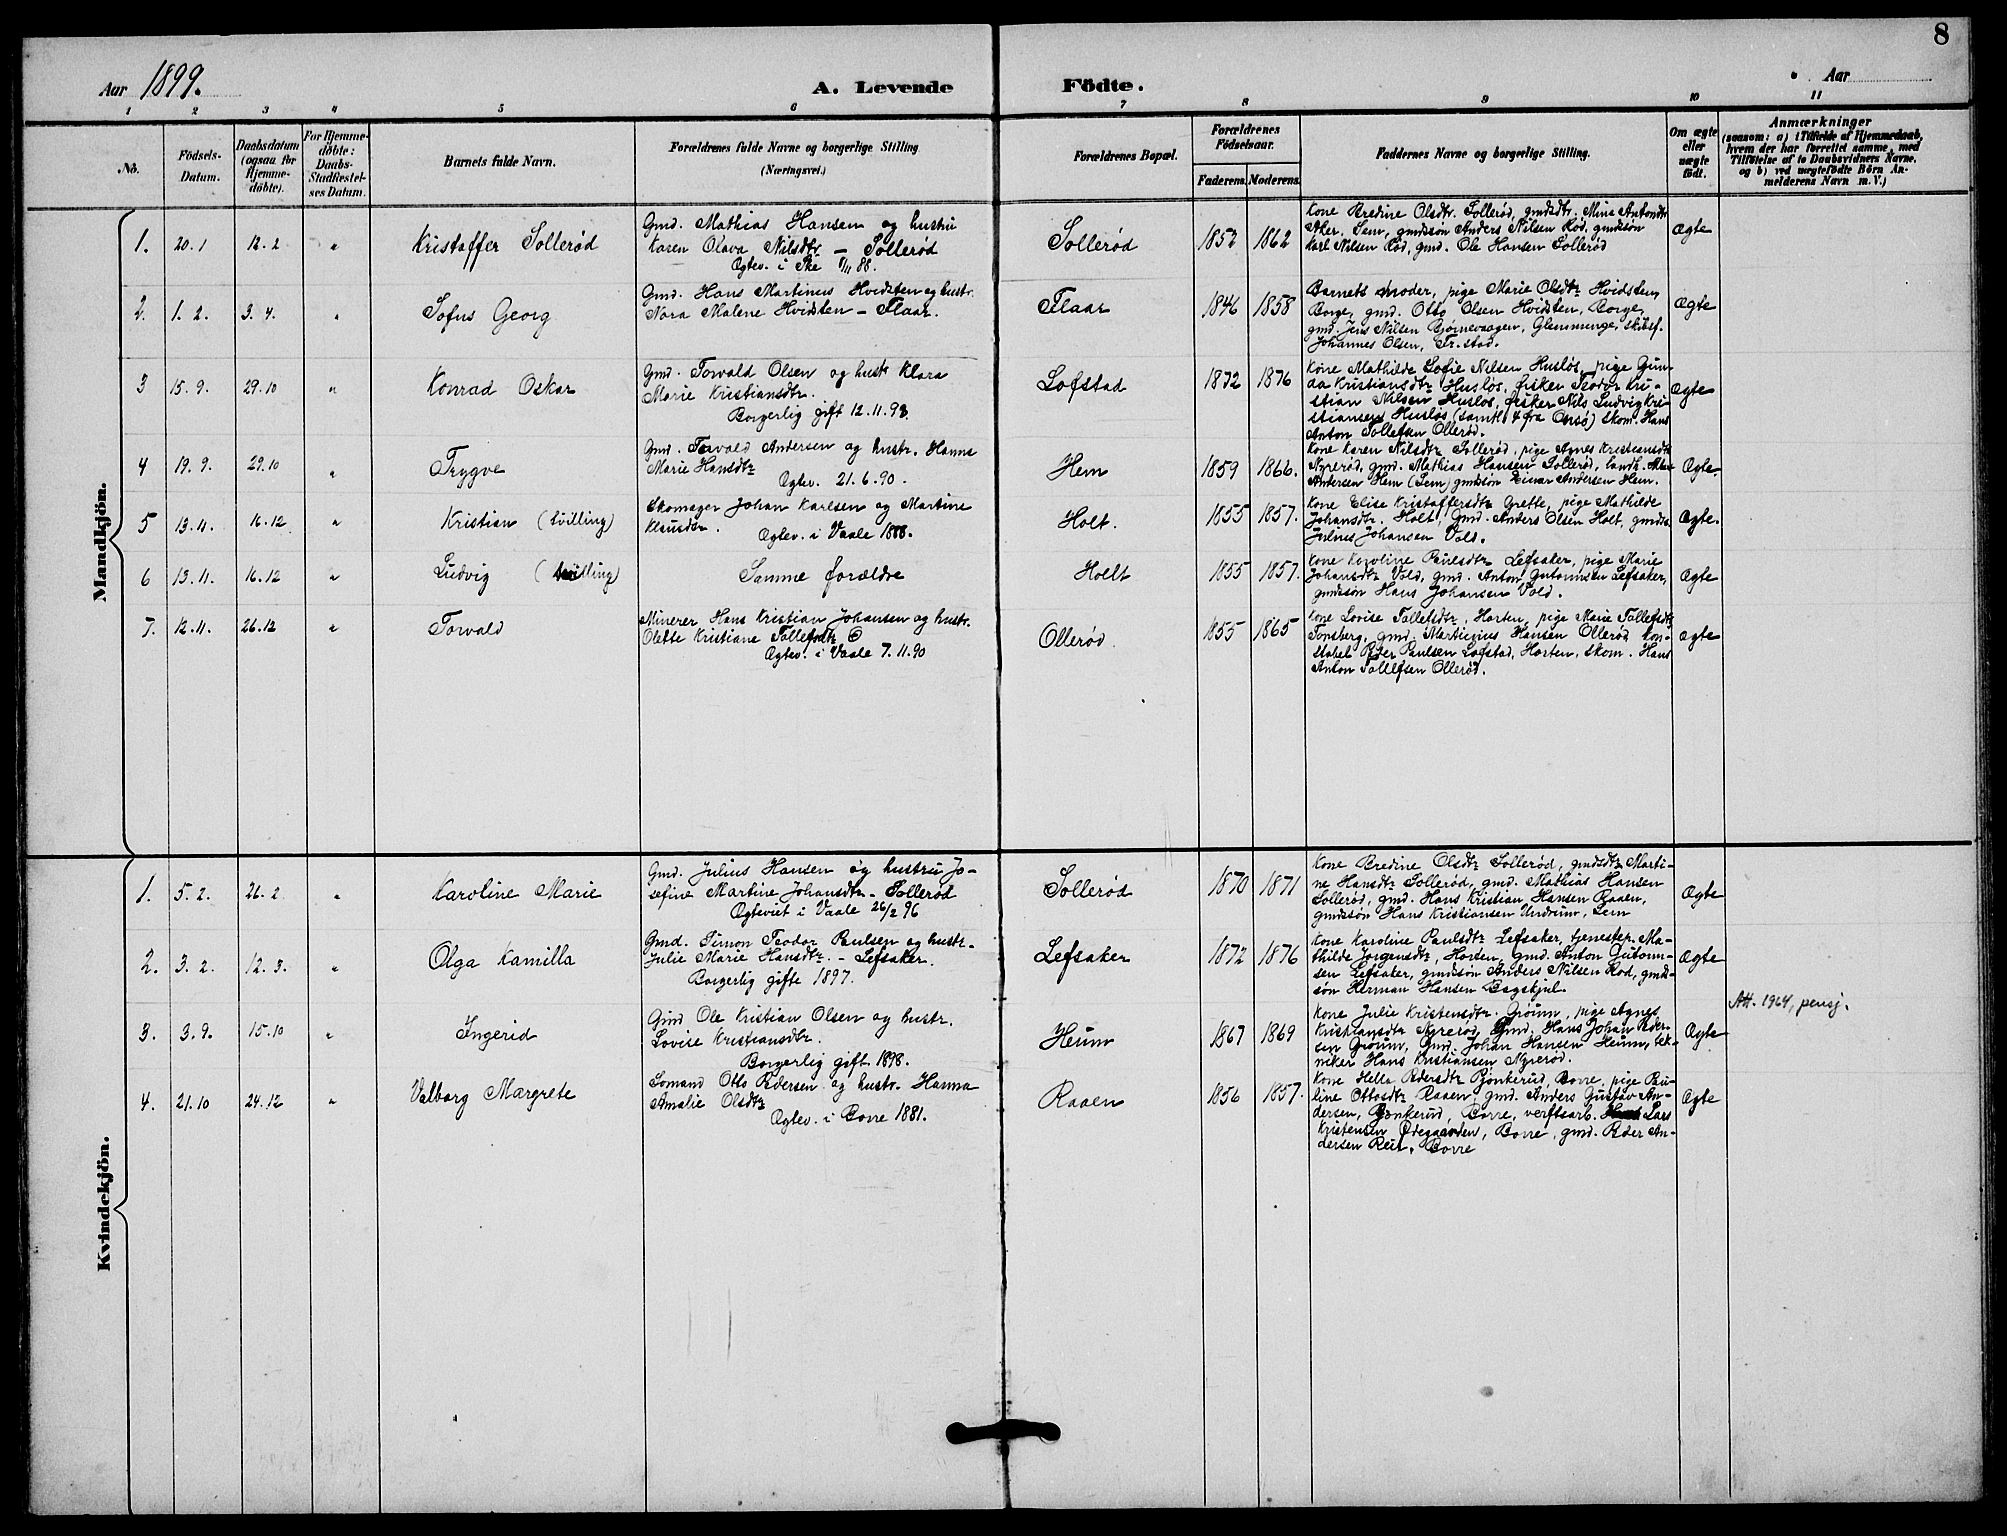 8
Aar 1899.
A. Levende Födte.
Aar
1 2 3 4 5 6 7 8 9 10 11
No.
Födsels-
Datum.
Daabsdatum
(ogsaa for
Hjemme-
döbte).
For Hjemme-
döbte:
Daabs-
Stadfæstel-
ses Datum.
Barnets fulde Navn.
Forældrenes fulde Navne og borgerlige Stilling
(Næringsvei.)
Forældrenes Bopæl.
Forældrenes
Födselsaar.
Faderens. Moderens.
Faddernes Navne og borgerlige Stilling.
Om ægte
eller
uægte
födt.
Anmærkninger
(saasom: a) i Tilfælde af Hjemmedaab,
hvem der har forrettet samme, med
Tilföielse af to Daabsvidners Navne,
og b) ved uægtefödte Börn An-
melderens Navn m. V.)
Mandkjön.
1. 20.1 12.2 " Kristoffer Sollerød
Gmd. Mathias Hansen og hustru
Karen Olava Nilsdtr – Sollerød
Ægtev. i Ske 8/11 88.
Sollerød 1852 1862
Kone Bredine Olsdtr. Sollerød, gmdsdtr. Mina Antondtr
Aker, Sem, gmdssøn Anders Nilsen Rød, gmdssøn
Karl Nilsen Rød, gmd. Ole Hansen Sollerød
Ægte
2. 1.2. 3.4. " Sofus Georg
Gmd. Hans Martinius Hvidsten og hustr.
Nora Malene Hvidsten – Flaar.
Flaar 1846 1858
Barnets moder, pige Marie Olsdtr Hvidsten,
Borge, gmd. Otto Olsen Hvidsten, Borge,
gmd. Jens Nilsen Bjørnevaagen, Glemminge, skibsf.
Johannes Olsen, Fr.stad.
Ægte
3 15.9. 29.10 " Konrad Oskar
Gmd. Torvald Olsen og hustr. Klara
Marie Kristiansdtr.
Borgerlig gift 12.11.98.
Lofstad 1872 1876
Kone Mathilde Sofie Nilsen Husløs, pige Gun-
da Kristiansdtr Husløs, fisker Teodor Kri-
stian Nilsen Husløs, fisker Nils Ludvig Kri-
stiansen Husløs (samtl. 4 fra Onsø) skom. Hans
Anton Tollefsen Ollerød.
Ægte
4 19.9. 29.10 " Trygve
Gmd. Torvald Andersen og hustr. Hanna
Marie Hansdtr
Ægtev. 21.6.90.
Hem 1859 1866.
Kone Karen Nilsdtr Sollerød, pige Agnes Kristiansdtr
Nyrerød, gmd. Mathias Hansen Sollerød, landh.
Andersen Hem (Sem) gmdssøn Einar Andersen Hem.
Ægte.
5 13.11. 16.12 " Kristian (tvilling)
Skomager Johan Karlsen og Martine
Klausdtr.
Ægtev. i Vaale 1888.
Holt. 1855 1857.
Kone Elise Kristoffersdtr Grette, pige Mathilde
Johansdtr. Holt, Gmd. Anders Olsen Holt, gmdss.
Julius Johansen Vold.
Ægte.
6 13.11. 16.12 " Ludvig (tvilling)
Samme forældre
Holt 1855 1857.
Kone Karoline Paulsdtr Lefsaker, pige Marie
Johansdtr Vold, gmd. Anton Gutormsen Lefsaker,
gmdssøn Hans Johansen Vold.
Ægte
7. 12.11. 26.12 " Torvald
Minerer Hans Kristian Johansen og hustr.
Olette Kristiane Tollefsdtr
Ægtev. i Vaale 7.11.90
Ollerød. 1855 1865
Kone Lovise Tollefsdtr, Horten, pige Marie Tollefsdtr
Tønsberg, gmd. Martinius Hansen Ollerød, kon-
stabel Peder Paulsen Lofstad, Horten, skom. Hans
Anton Tollefsen Ollerød.
Ægte
Kvindekjön.
1. 5.2. 26.2 " Karoline Marie
Gmd. Julius Hansen og hustru Jo-
sefine Martine Johansdtr – Sollerød
Ægteviet i Vaale 26/2 96
Sollerød 1870 1871
Kone Bredine Olsdtr Sollerød, gmdsdtr Marti-
ne Hansdtr Sollerød, gmd. Mathias Hansen
Sollerød, gmd. Hans Kristian Hansen Raaen,
gmdssøn Hans Kristiansen Undrum, Sem
Ægte
2. 3.2. 12.3. " Olga Kamilla
Gmd. Simon Teodor Paulsen og hustr.
Julie Marie Hansdtr. – Lefsaker.
Borgerlig gifte 1897.
Lefsaker 1872 1876
Kone Karoline Paulsdtr Lefsaker, tjenestep. Ma-
thilde Jørgensdtr, Horten, gmd. Anton Gutorm-
sen Lefsaker, gmdssøn Anders Nilsen Rød, gmds-
søn Herman Hansen Bogskjul.
Ægte
3. 3.9. 15.10 " Ingerid
Gmd Ole Kristian Olsen og hustr.
Lovise Kristiansdtr.
Borgerlig gift 1898.
Heum 1867 1869
Kone Julie Kristensdtr. Grøum, pige Agnes
Kristiansdtr Nyrerød, Gmd. Hans Johan Peder-
sen Grøum, Gmd. Johan Hansen Heum, tek-
niker Hans Kristiansen Nyrerød.
Ægte
Att. 1964, pensj.
4. 21.10 24.12 " Valborg Margrete
Sømand Otto Pedersen og hustr. Hanna
Amalie Olsdtr
Ægtev. i Borre 1881.
Raaen 1856 1857.
Kone Hella Pedersdtr Bjønkerud, Borre, pige Pau-
line Ottosdtr Raaen, gmd. Anders Gustav An-
dersen, Bjønkerud, Borre, verftsarb. Lars
Kristensen Ødegaarden, Borre, gmd. Peder An-
dersen Reir, Borre
Ægte